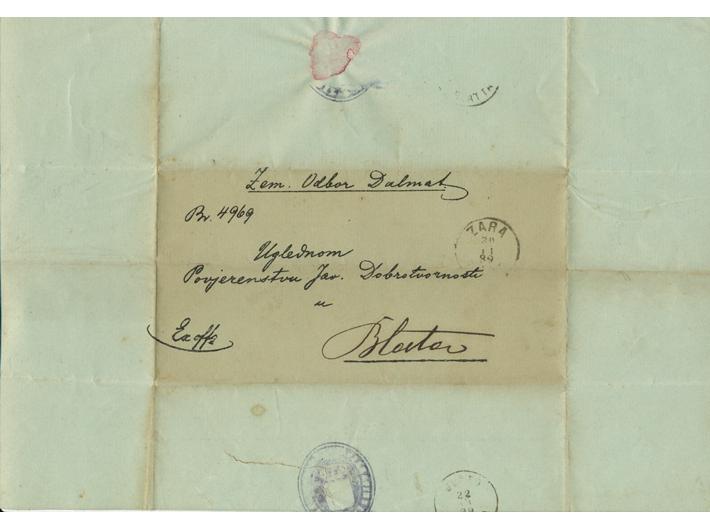 Zem. Odbor Dalmat.
Br. 4969
ZARA
20
11
89
Uglednom
Povjerenstvu Jav. Dobrotvornosti
u
Ex offo
Blatu
22